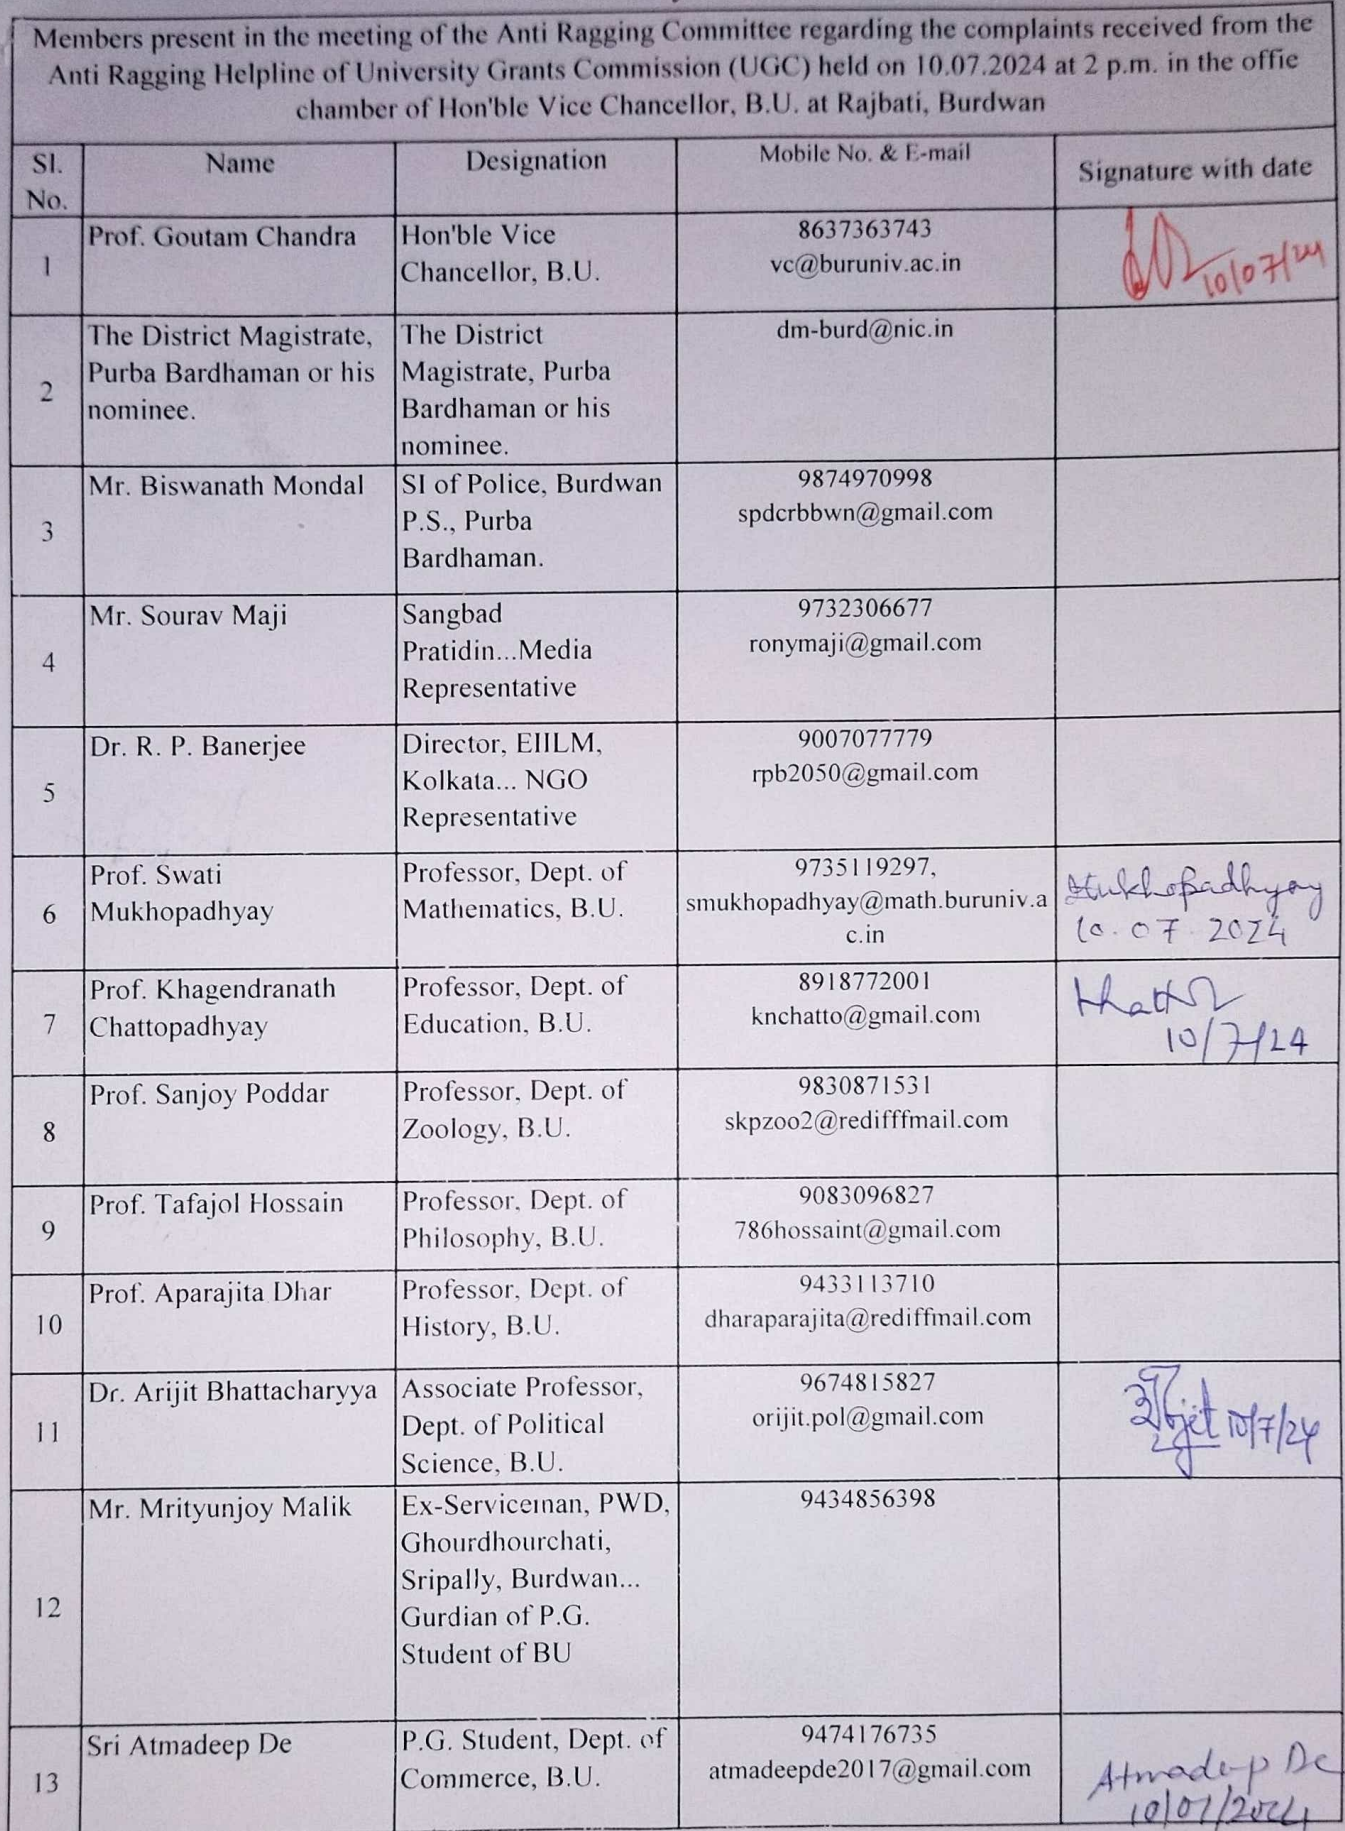 Members present in the meeting of the Anti Ragging Committee regarding the complaints received from the
Anti Ragging Helpline of University Grants Commission (UGC) held on 10.07.2024 at 2 p.m. in the offie
chamber of Hon'ble Vice Chancellor, B.U. at Rajbati, Burdwan
Sl.
No.
Name
Designation
Mobile No. & E-mail
Signature with date
1
Prof. Goutam Chandra
Hon'ble Vice
Chancellor, B.U.
8637363743
vc@buruniv.ac.in
10/07/24
2
The District Magistrate,
Purba Bardhaman or his
nominee.
The District
Magistrate, Purba
Bardhaman or his
nominee.
dm-burd@nic.in
3
Mr. Biswanath Mondal
SI of Police, Burdwan
P.S., Purba
Bardhaman.
9874970998
spdcrbbwn@gmail.com
4
Mr. Sourav Maji
Sangbad
Pratidin...Media
Representative
9732306677
ronymaji@gmail.com
5
Dr. R. P. Banerjee
Director, EIILM,
Kolkata... NGO
Representative
9007077779
rpb2050@gmail.com
6
Prof. Swati
Mukhopadhyay
Professor, Dept. of
Mathematics, B.U.
9735119297,
smukhopadhyay@math.buruniv.a
c.in
Mukhopadhyay
10.07.2024
7
Prof. Khagendranath
Chattopadhyay
Professor, Dept. of
Education, B.U.
8918772001
knchatto@gmail.com
10/7/24
8
Prof. Sanjoy Poddar
Professor, Dept. of
Zoology, B.U.
9830871531
skpzoo2@redifffmail.com
9
Prof. Tafajol Hossain
Professor, Dept. of
Philosophy, B.U.
9083096827
786hossaint@gmail.com
10
Prof. Aparajita Dhar
Professor, Dept. of
History, B.U.
9433113710
dharaparajita@rediffmail.com
11
Dr. Arijit Bhattacharyya
Associate Professor,
Dept. of Political
Science, B.U.
9674815827
orijit.pol@gmail.com
10/7/24
12
Mr. Mrityunjoy Malik
Ex-Serviceman, PWD,
Ghourdhourchati,
Sripally, Burdwan...
Gurdian of P.G.
Student of BU
9434856398
13
Sri Atmadeep De
P.G. Student, Dept. of
Commerce, B.U.
9474176735
atmadeepde2017@gmail.com
Atmadeep De
10/07/2024